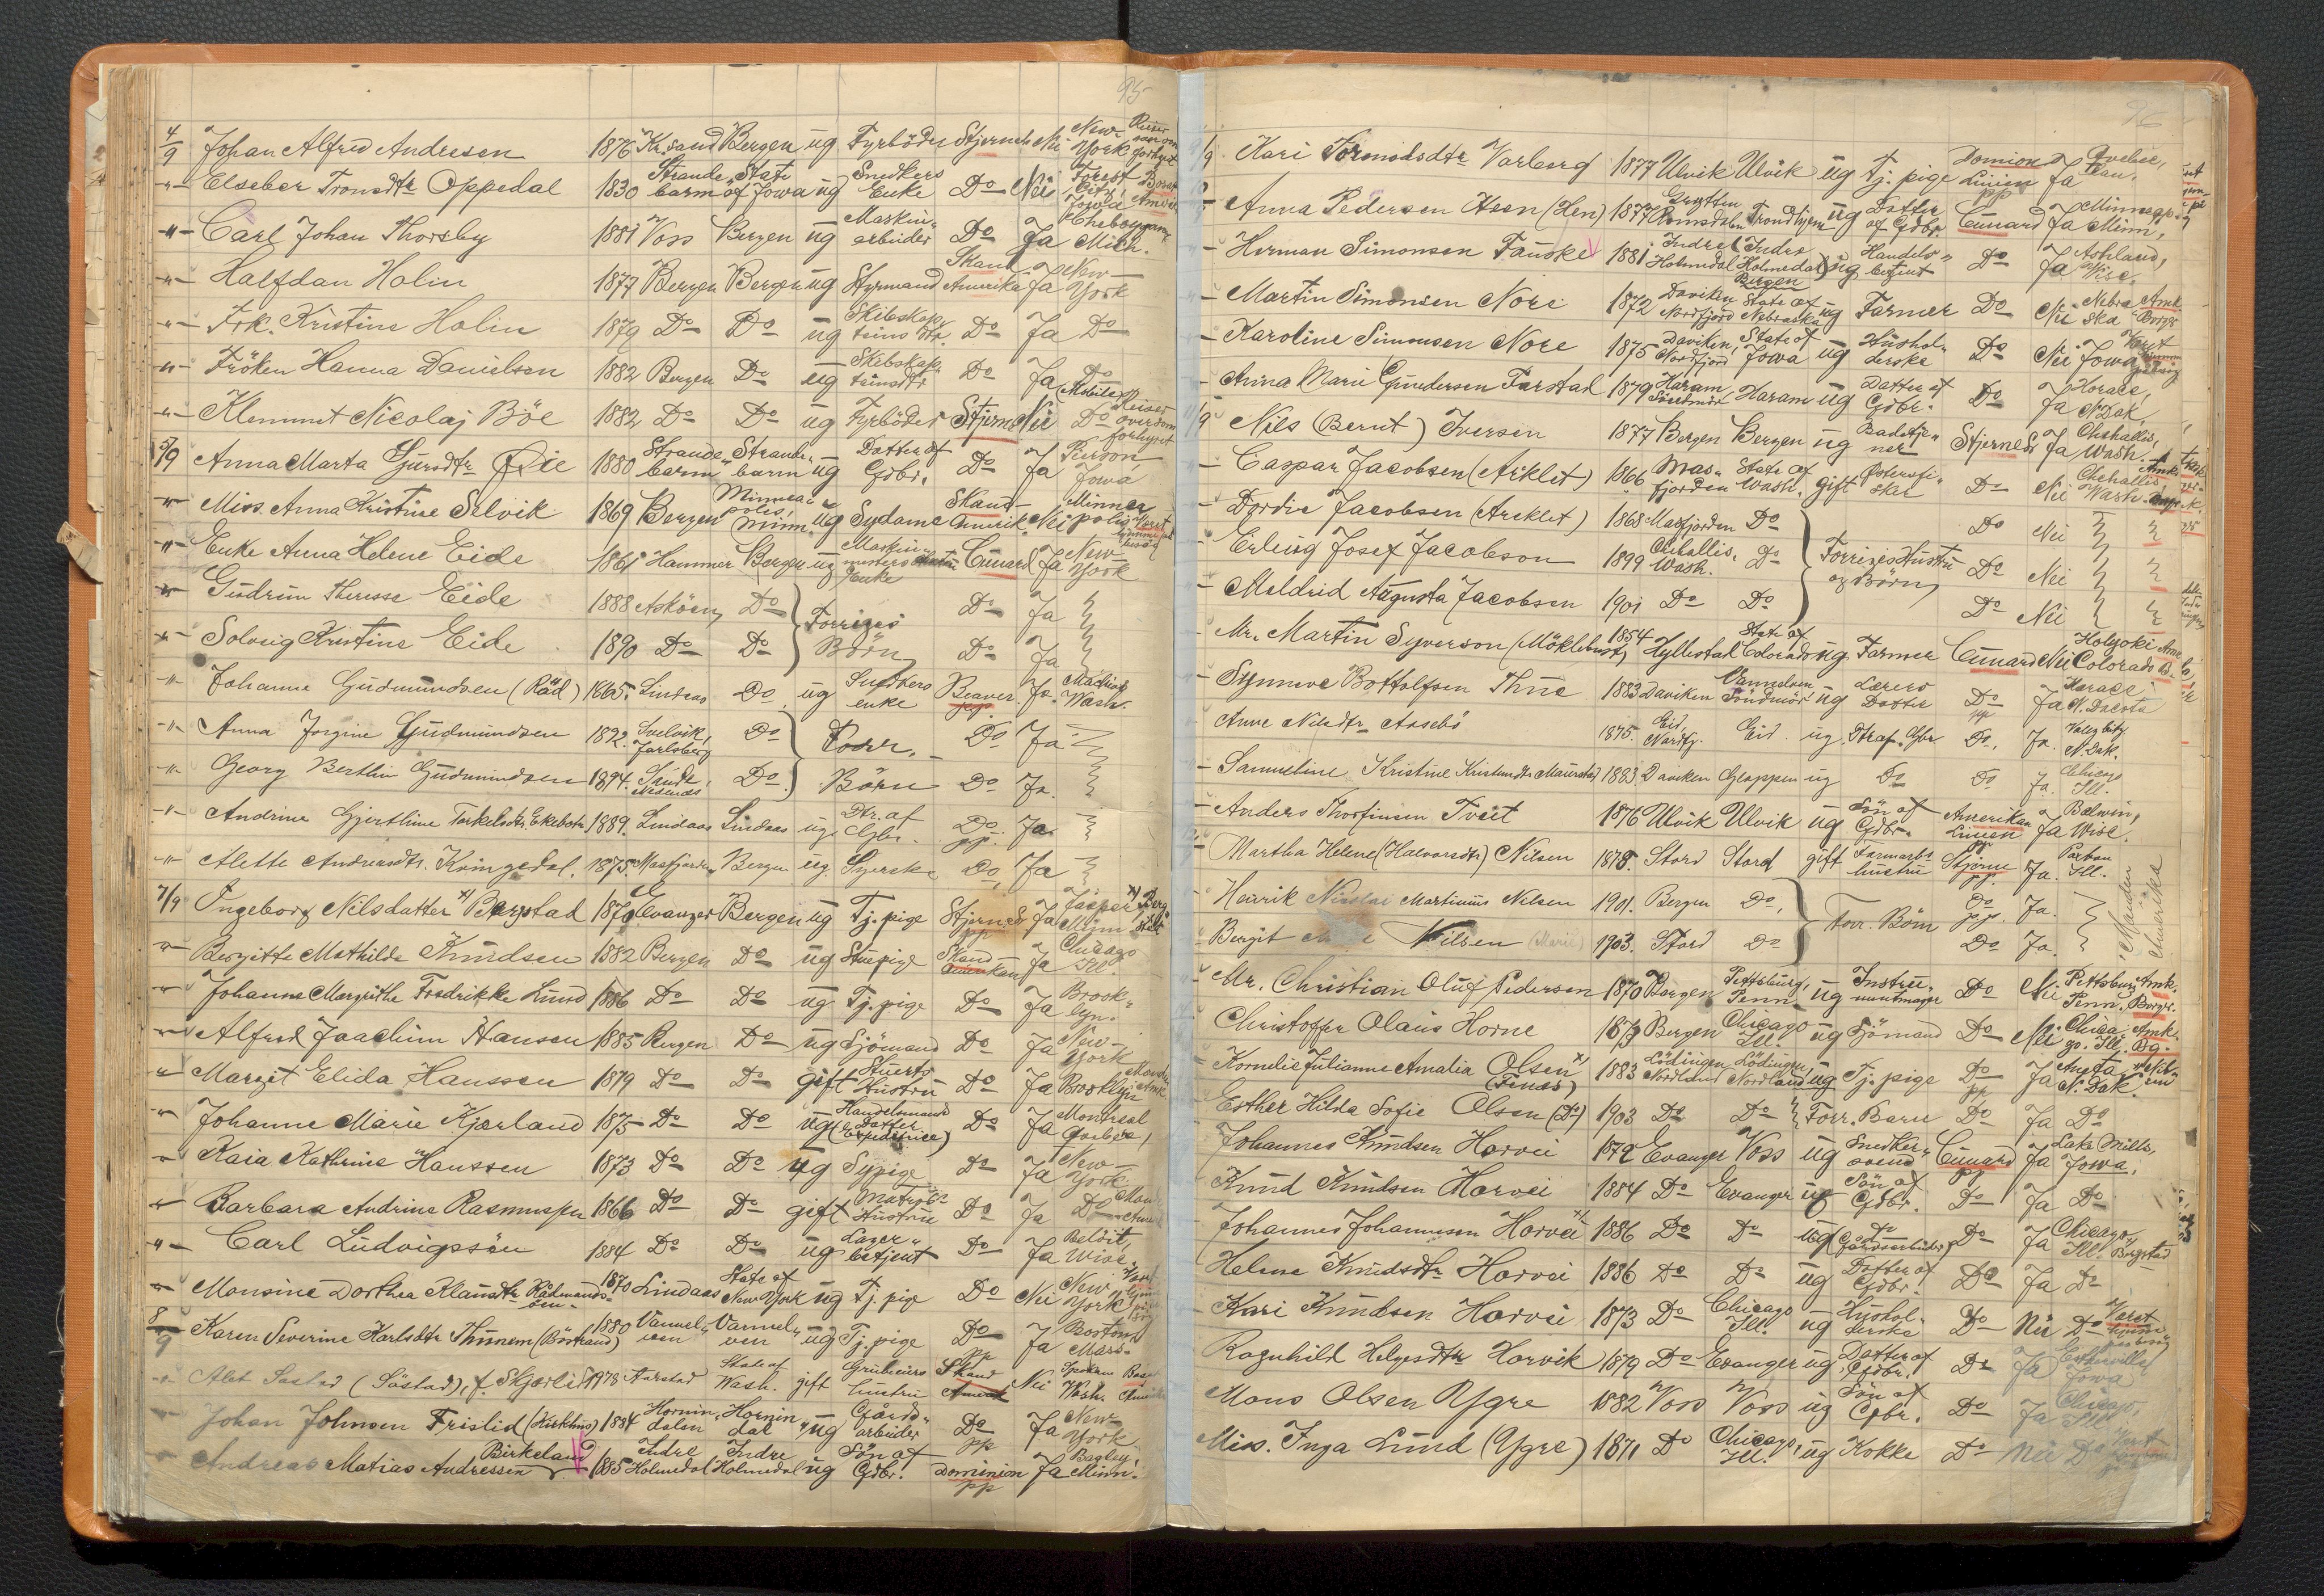 95
4/9 Johan Alfred Andresen 1876 Kr.sand Bergen ug Fyrböder Stjernel. Nei New-York Reiser som forhyret
"- Elseber Tronsdtr Oppedal 1830 Strandebarm State of Jowa ug Snedkers Enke Do Nei Forest City, Jowa
"- Carl Johan Thorsby 1881 Voss Bergen ug Maskinarbeider Do Ja Cheboygan, Mich.
"- Halfdan Holin 1877 Bergen Bergen ug Styrmand Skand. Amerika Ja New-York
"- Frk. Kristine Holin 1879 Do Do ug Skibskapteins dtr. Do Ja Do
"- Fröken Hanna Danielsen 1882 Bergen Do ug Skibskapteinsdtr Do Ja Do (Mobile)
"- Klemmet Nicolaj Böe 1882 Do Do ug Fyrböder Stjerne Nei Do Reiser over som forhyret
5/9 Anna Marta Sjursdtr Øie 1880 Strandebarm Strandebarm ug Datter af Gdbr. Do Ja Pierson, Jowa
"- Miss. Anna Kristine Selvik 1869 Bergen Minneapolis, Minn. ug Sydame Skand-Amerik. Nei Minneapolis Været hjemme besøg
"- Enke Anna Helene Eide 1861 Hammer Bergen ug Maskinmesters Enke Cunard Ja New-York
"- Gudrun Theresse Eide 1888 Asköen Do } Forriges Do Ja
"- Solveig Kristine Eide 1890 Do Do } Börn Do Ja
"- Johanne Gudmundsen (Räd) 1865. Lindaas Do ug Snedkers enke Beaver pp. Ja. Machias Wash.
"- Anna Jorgine Gudmundsen 1892. Svelvik, Jarlsberg Do } Forr. Do Ja
"- Georg Berthin Gudmundsen 1894. Sande, Nesnes Do } Börn Do Ja.
"- Andrine Gjerthine Torkelsdtr. Ekeboten 1889. Lindaas Lindaas ug. Dtr. af Gbr. Do pp. Ja.
"- Alette Andreasdtr. Kvingedal. 1875. Masfjorden Bergen ug. Syerske Do, Ja
7/9 Ingeborg Nilsdatter x) Bergstad 1870 Evanger Bergen ug Tj. pige Stjernes pp Ja Jasper Minn
"- Bergitte Mathilde Knudsen 1882 Bergen Do ug Stuepige Skand Amerikan Ja Chicago Ill.
"- Johanna Margrithe Fredrikke Lund 1886 Do Do ug Tj. pige Do Ja Brooklyn.
"- Alfred Joachim Hansen 1885 Bergen Do ug Sjömand Do Ja New-York
"- Margit Elida Hanssen 1879 Do Do gift Stuerts Hustru Do Ja Brooklyn
"- Johanne Marie Kjærland 1875 Do Do ug Handelsmands Datter (Expeditrice) Do Ja Montreal Qvebec
"- Kaia Kathrine Hanssen 1873 Do Do ug Sypige Do Ja New-York
"- Barbara Andrine Rasmussen 1866 Do Do gift Matros Hustru Do Ja Do
"- Carl Ludvigssön 1884 Do Do ug Lagerbetjent Do Ja Beloit, Wisc.
"- Monsine Dorthea Klausdtr Rådmandsöen. 1870 Lindaas State of New York ug Tj. pige Do Nei New York
8/9 Karen Severine Karlsdtr Thunem (Börstrand) 1880 Vannelven Vannelven ug Tj. pige Do pp Ja Boston Mass.
"- Alet Sæstad (Såstad), f. Skjerlie 1878 Aarstad State of Wash. gift Grubeiers hustru Skand Amerik Nei Spokane Wash.
"- Johan Johnsen Frislid (Kirkhus) 1884 Hornindalen Hornindal ug Gårdsarbeider Do pp Ja New-York
"- Andreas Matias Andressen Birkeland 1885 Indre Holmedal Indre Holmedal ug Sön af Gdbr. Dominion pp Ja Bagley, Minn.
96
/9 Kari Tormodsdtr Varberg 1877 Ulvik Ulvik ug Tj. pige Dominion Linien pp Ja
- Anna Pedersen Heen (Hen) 1877 Grytten Romsdalen Trondhjem ug Datter af Gdbr. Cunard Ja Minneap. Minn.
- Herman Simonsen Fauske 1881 Indre Holmedal (Indre Holmedal) Bergen ug Handelsbetjent Do Ja Ashland, Wisc.
- Martin Simonsen Nore 1872 Daviken Nordfjord State of Nebraska ug Farmer Do Nei Nebraska Amk. Borger
- Karoline Simonsen Nore 1875 Daviken, Nordfjord State of Jowa ug Husholderske Do Nei Jowa Været hjemme
- Anna Marie Gundersen Farstad 1879 Haram Söndmör Haram ug Datter af Gdbr. Do Ja Horace, N.Dak.
/9 Nils (Bernt) Iversen 1877 Bergen Bergen ug Badetjener Stjernes Ja Chehallis, Wash.
- Caspar Jacobsen (Areklet) 1866 Masfjorden State of Wash. gift Østersfisker Do Nei Chehallis, Wash. Amk.
- Dordie Jacobsen (Areklet) 1868 Masfjorden Do } Do Nei
- Erling Josef Jacobson 1899 Chehallis, Wash. Do } Forriges Hustru og Börn Do Nei
- Meldrid Augusta Jacobsen 1901 Do Do } Do Nei
- Mr. Martin Syverson (Möklebust) 1854 Hyllestad State of Colorado ug Farmer Cunard Nei Holyoke Colorado
- Synneve Bottolfsen Thue 1883 Daviken Vannelven Söndmör ug Lærers Datter Do pp Ja Horace N. Dacota
- Anne Nilsdtr Aasebö 1875. Eid, Nordfj. Eid. ug. Dtr. af Gbr Do, Ja. Valey City N.Dak.
- Samueline Kristine Kristensdtr. Maurstad 1883 Daviken Gloppen ug Do Do Ja. Chicago Ill.
- Anders Thorfinsen Tveit 1876 Ulvik Ulvik ug Sön af Gdbr. Amerikan Linien Ja Balwin, Wisc.
- Martha Helene (Halvorsdtr) Nilsen 1878. Stord Stord gift Farmers hustru Stjerne pp. Ja. Paxton Ill.
- Henrik Nicolai Martinius Nilsen 1901. Bergen Do, } Forr. Börn Do pp. Ja.
- Bergit Nilsen (Marie) 1903. Stord Do } Do Ja.
Manden i Amerika
- Mr. Christian Oluf Pedersen 1870 Bergen Pettsburg, Penn. ug Instrumentmager Do Nei Pettsburg Penn. Amk. Borger.
Christoffer Olaus Horne 1873 Bergen Chicago Ill. ug Sjömand Do Nei Chicago. Ill. Amk. Bg.
- Kornelie Julianne Amalia Olsen x) (Fenes) 1883 Lödingen Nordland Lödingen, Nordland ug Tj. pige Do pp Ja Aneta N. Dak.
- Esther Hilda Sofie Olsen (Do) 1903 Do Do } Forr. Barn Do Ja Do
- Johannes Knudsen Horvei 1872 Evanger Voss ug Snedkersvend Cunard pp Ja Lake Mills, Jowa.
- Knud Knudsen Horvei 1884 Do Evanger ug Sön af Gdbr. Do Ja Do
- Johannes Johannesen Horvei x) 1886 Do Do ug Do (Gårdsarbeider) Do Ja Chicago Ill. Bergstad
Helene Knudsdtr Horvei 1886 Do Do ug Datter af Gdbr. Do Ja Do
Kari Knudsen Horvei 1873 Do Chicago Ill. ug Husholderske Do Nei Do Været hjemme
Ragnhild Helgesdtr Horvik 1879 Do Evanger ug Datter af Gdbr. Do Ja Estherville Jowa
Mons Olsen Ygre 1882 Voss Voss ug Sön af Gdbr. Do Ja Chicago, Ill.
Miss. Inga Lund (Ygre) 1871 Do Chicago, Ill. ug Kokke Do Nei Do Været